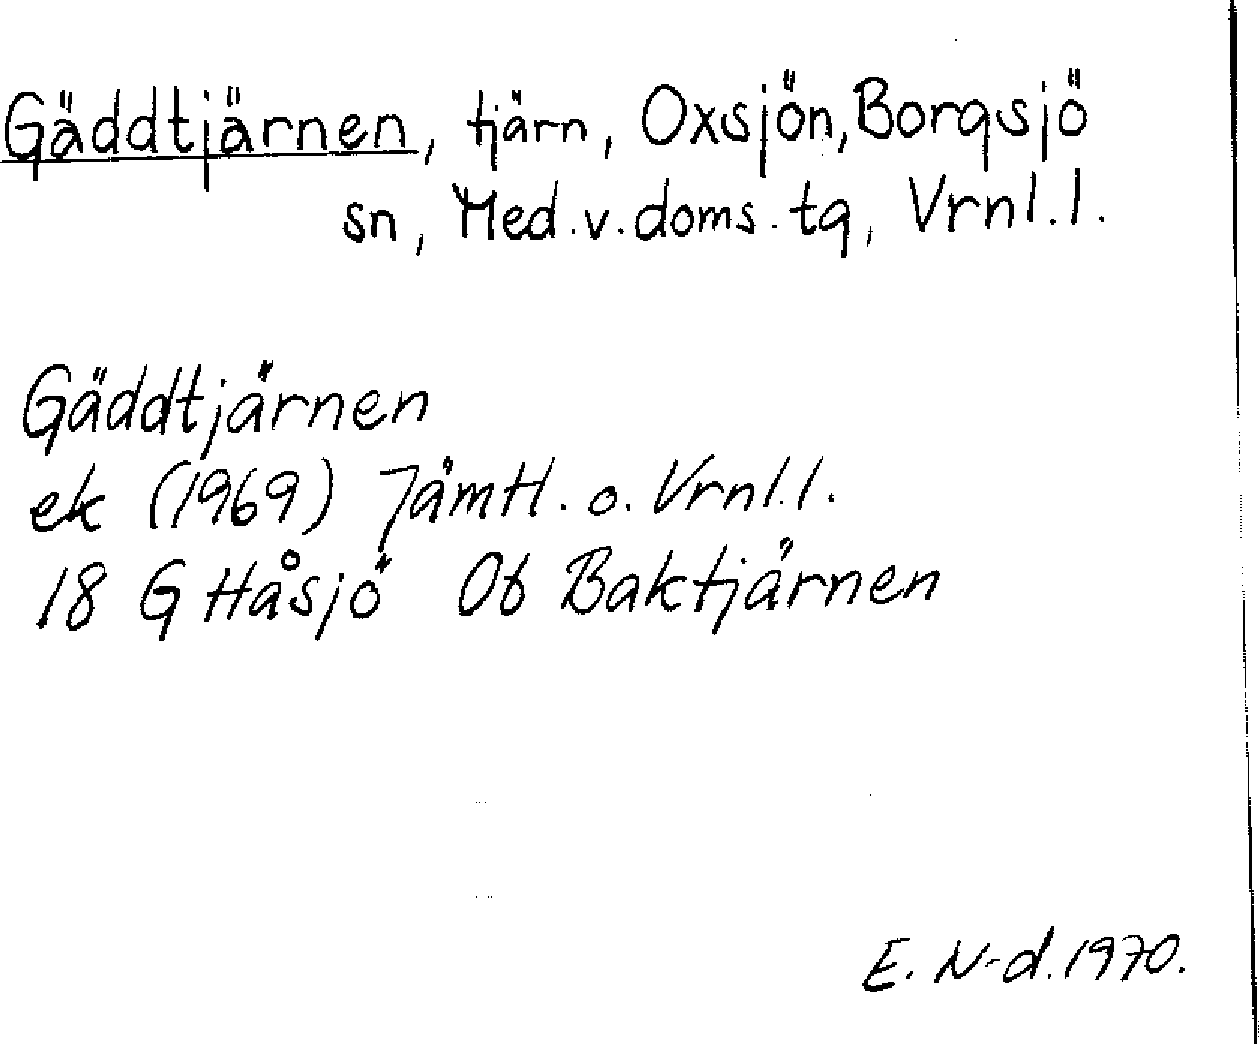 Gäddtjärnen, tjärn, Oxsjön, Borgsjö
sn, Med.v.doms.tg, Vrnl.l.
Gäddtjärnen
ek (1969) Jämtl. o. Vrnl.l.
18 G Håsjö Ob Baktjärnen
E. N-d. 1970.